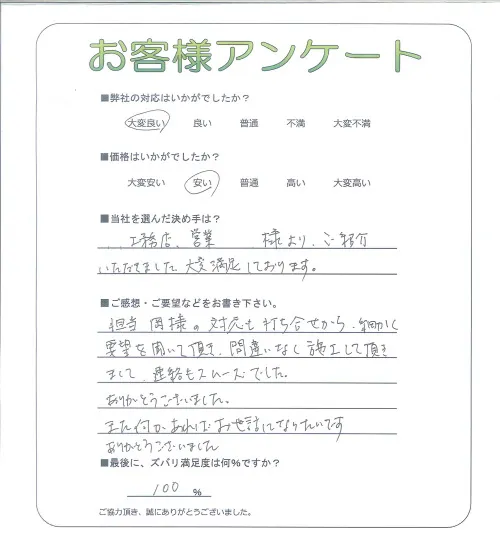 お客様アンケート
■弊社の対応はいかがでしたか？
大変良い 良い 普通 不満 大変不満
■価格はいかがでしたか？
大変安い 安い 普通 高い 大変高い
■当社を選んだ決め手は？
工務店、営業 様より、ご紹介
いただきました。大変満足しております。
■ご感想・ご要望などをお書き下さい。
担当 岡様の対応も打ち合せから、細かく
要望を聞いて頂き、間違いなく施工して頂き
まして、連絡もスムーズでした。
ありがとうございました。
また何かあればお世話になりたいです
ありがとうございました
■最後に、ズバリ満足度は何%ですか？
100 %
ご協力頂き、誠にありがとうございました。